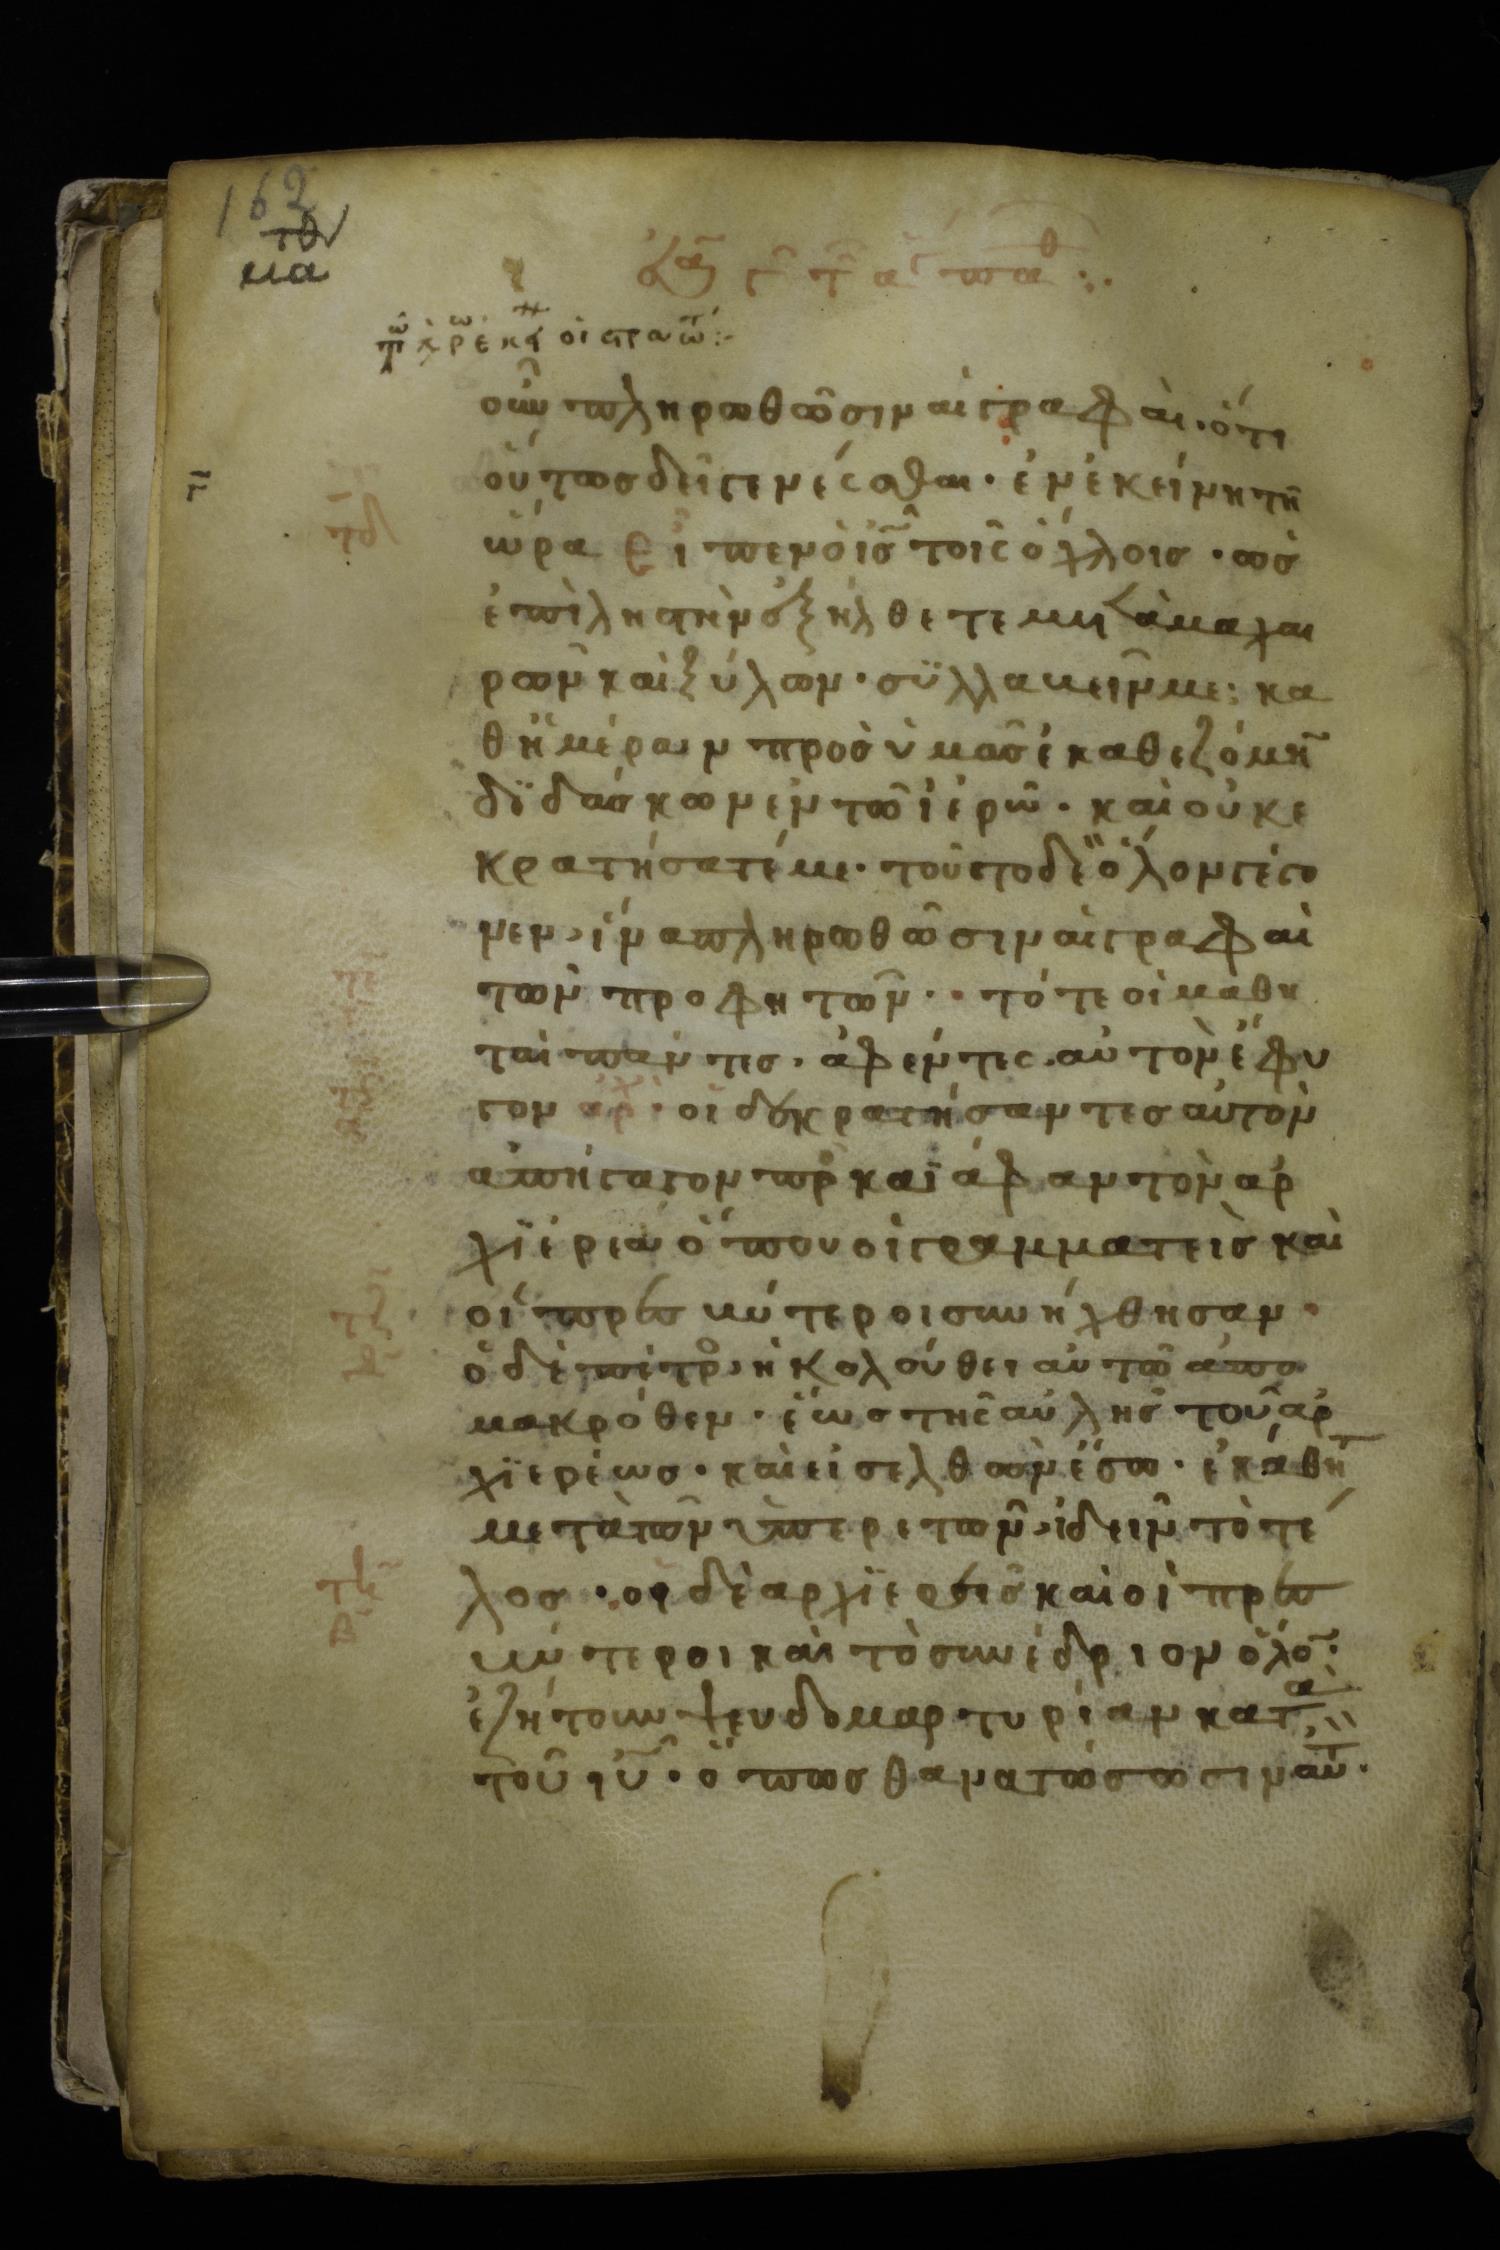 162
οὖν πληρωθῶσιν αἱ γραφαὶ· ὅτι
οὕτως δεῖ γενέσθαι· ἐν ἐκείνη τῆ
ὥρα εἶπεν ὁ ις τοῖς ὄχλοις· ὡς
ἐπὶ ληστὴν ἐξήλθετε μετὰ μαχαι
ρῶν καὶ ξύλων· συλλαβεῖν με· κα
θημέραν πρὸς ὑμᾶς ἐκαθεζόμην
διδάσκων ἐν τῶ ἱερῶ· καὶ οὐκ ε
κρατήσατέ με· τοῦτο δὲ ὅλον γέγο
νεν, ἵνα πληρωθῶσιν αἱ γραφαὶ
τῶν προφητῶν· τότε οἱ μαθη
ταὶ πάντες· ἀφέντες αὐτὸν ἔφυ
γον οἱ δὲ κρατήσαντες αὐτὸν
ἀπήγαγον πρ καϊάφαν τὸν ἀρ
χϊερέα ὅπου οἱ γραμματεῖς καὶ
οἱ πρεσβύτεροι συνήχθησαν·
ὁ δὲ πέτρος ἠκολούθει αὐτῶ ἀπο
μακρόθεν· ἕως τῆς αὐλῆς τοῦ ἀρ
χϊερέως· καὶ εἰσελθὼν ἔσω· ἐκάθητ
μετὰ τῶν ὑπερετῶν, ἰδεῖν τὸ τέ
λος· οἱ δὲ ἀρχϊερεῖς καὶ οἱ πρεσ
βύτεροι καὶ τὸ συνέδριον ὅλον·
ἐζήτουν ψευδομαρτυρίαν κατὰ
τοῦ ιυ· ὅπως θανατώσωσιν αὐτ·